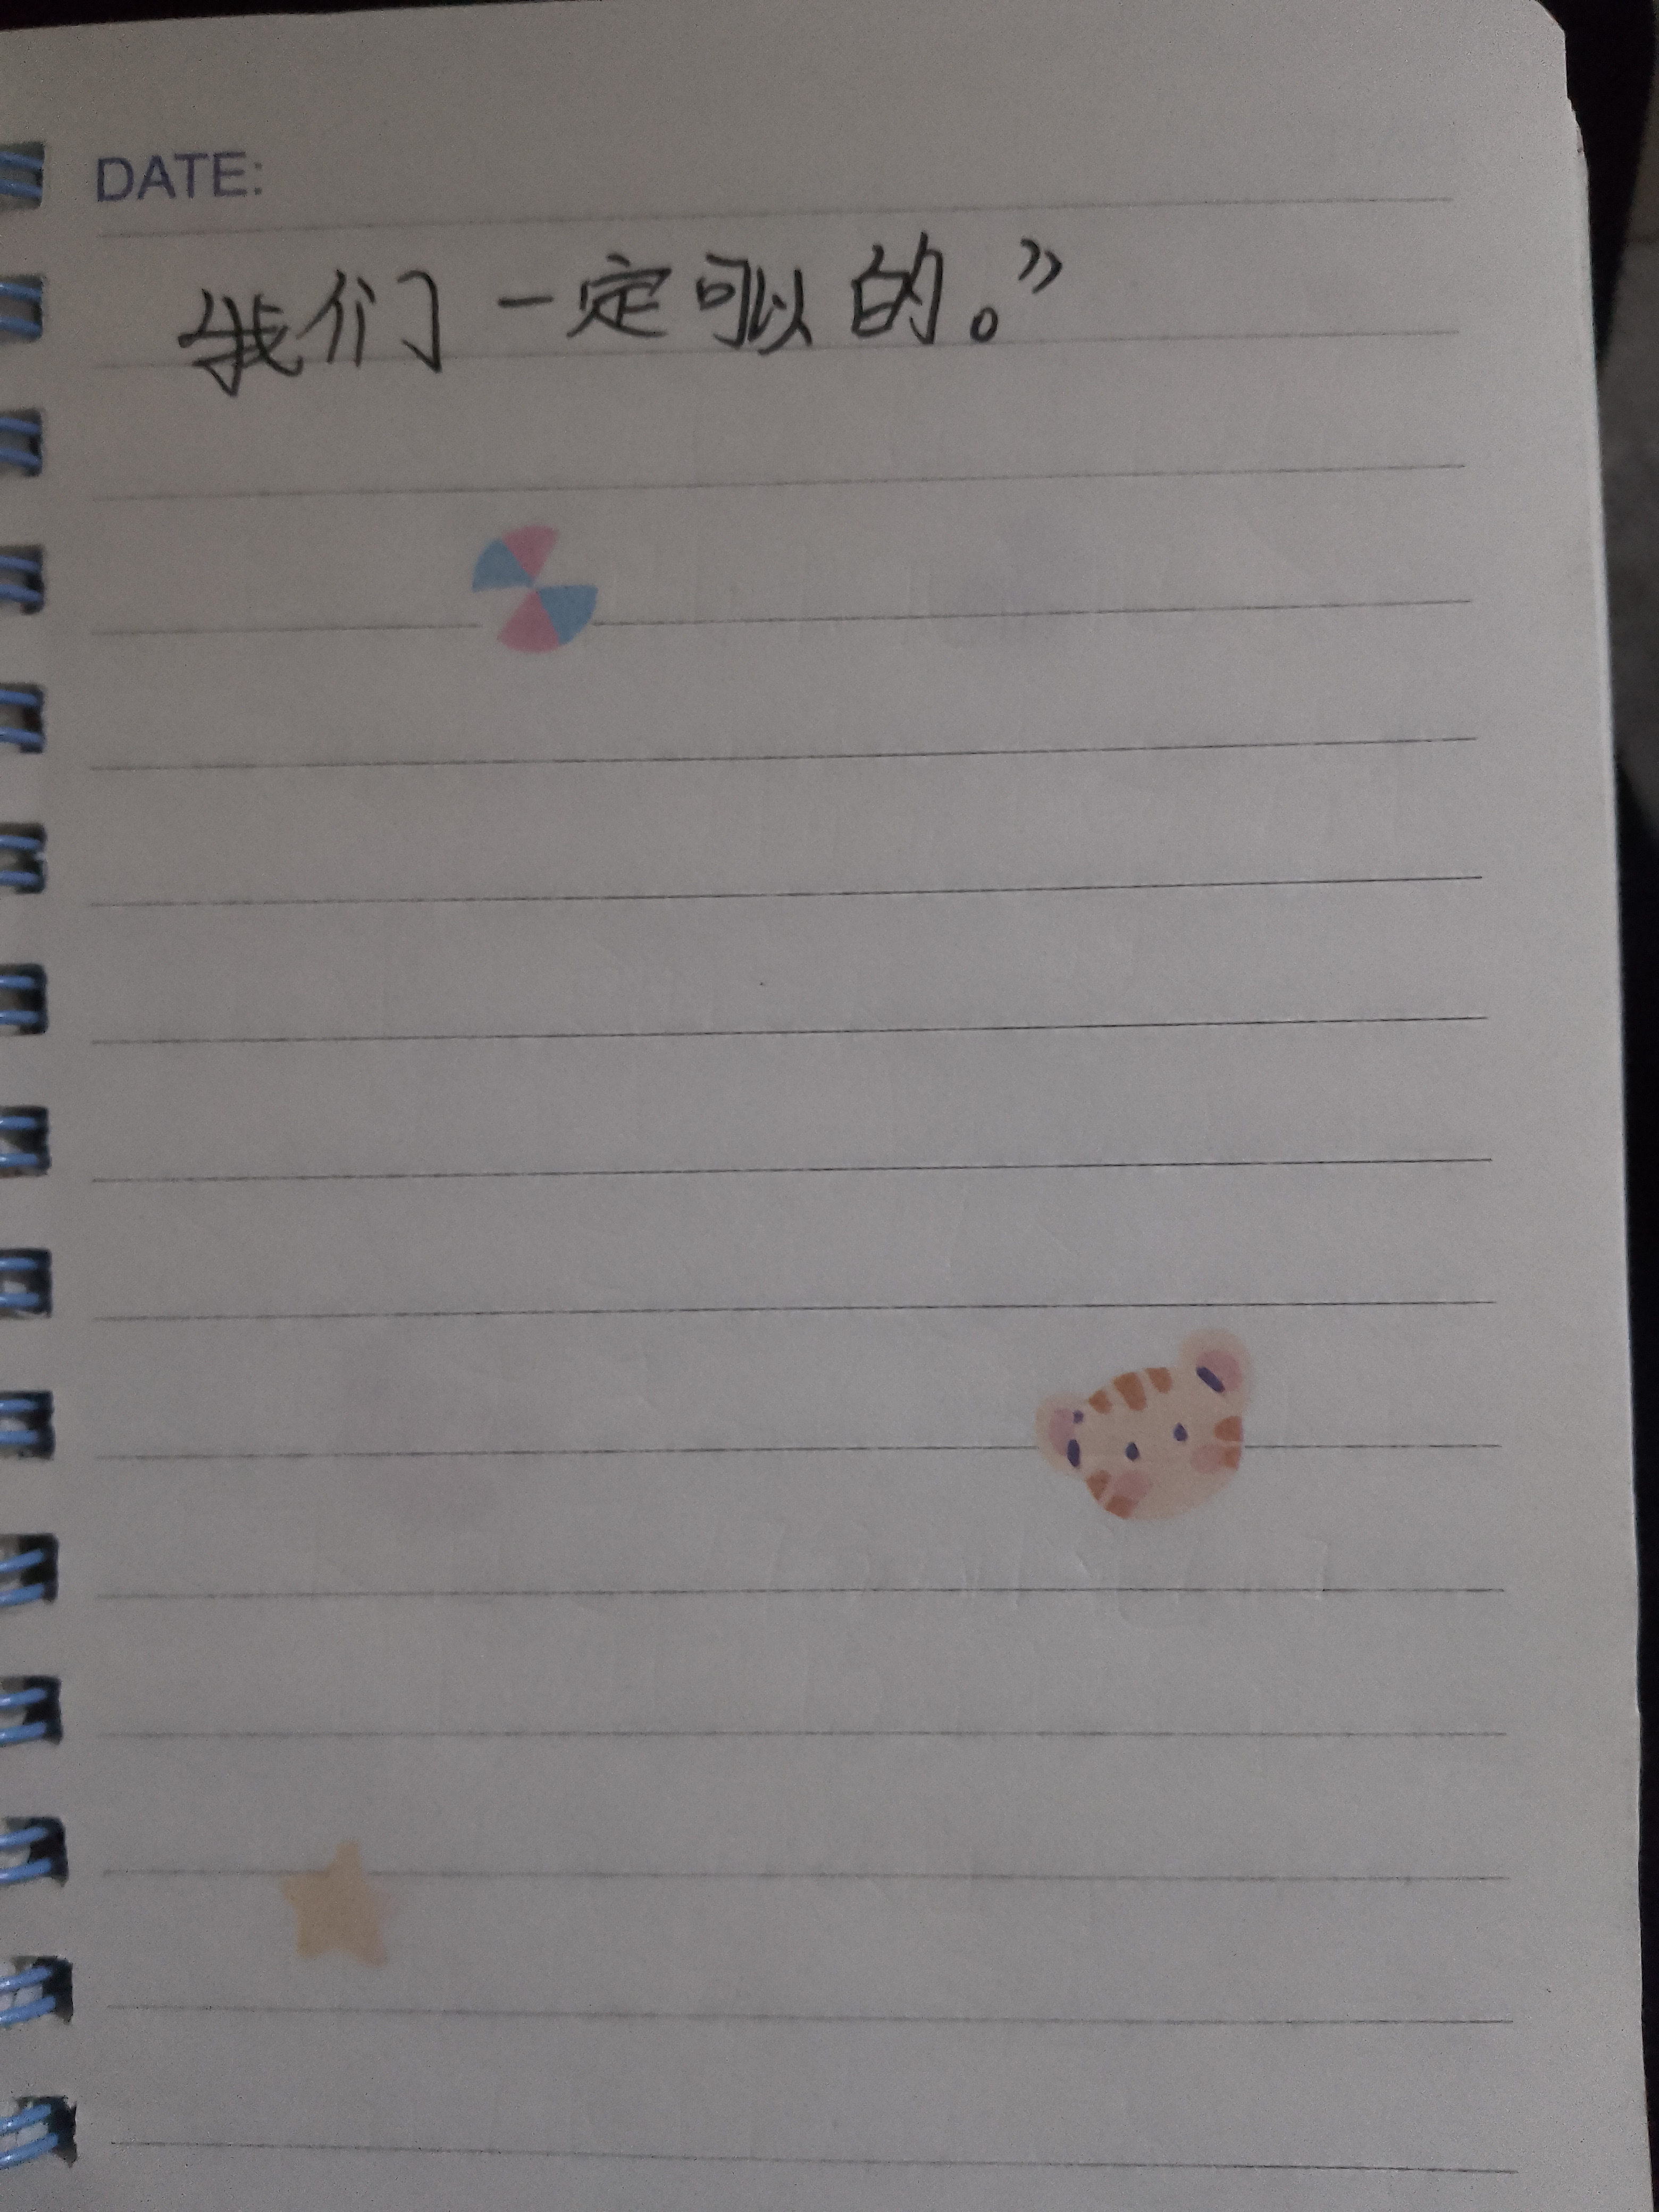 DATE:
我们一定可以的。”